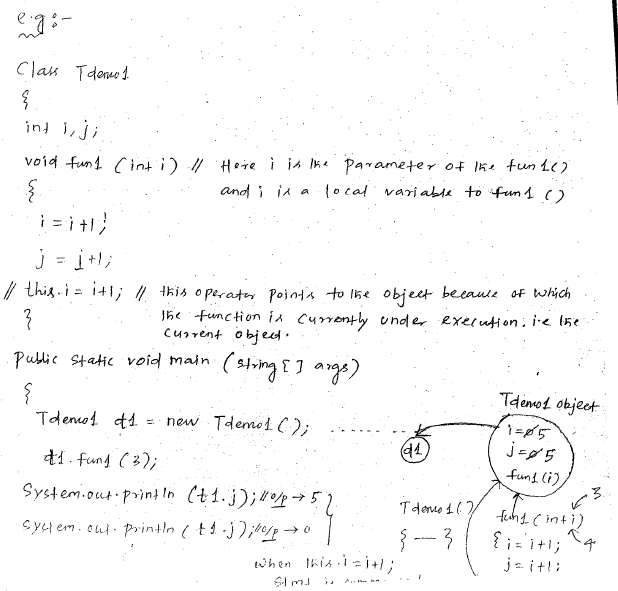 e.g :-
Class Tdemo1
{
int i, j;
void fun1 (int i) // Here i is the parameter of the fun1()
{ and i is a local variable to fun1 ()
i = i+1;
j = j+1;
// this.i = i+1; // this operator points to the object because of which
} the function is currently under execution. i.e the
current object.
Public static void main (string [ ] args)
{
Tdemo1 t1 = new Tdemo1 ();
t1. fun1 (3);
System.out.println (t1.j); //o/p → 5
System.out.println (t1.j); //o/p → 0
when this.i = i+1;
stmt is
Tdemo1 object
d1
i = 0 5
j = 0 5
fun1 (i)
Tdemo1()
{ — }
fun1 (int i)
3
4
{ i = i+1;
j = i+1;